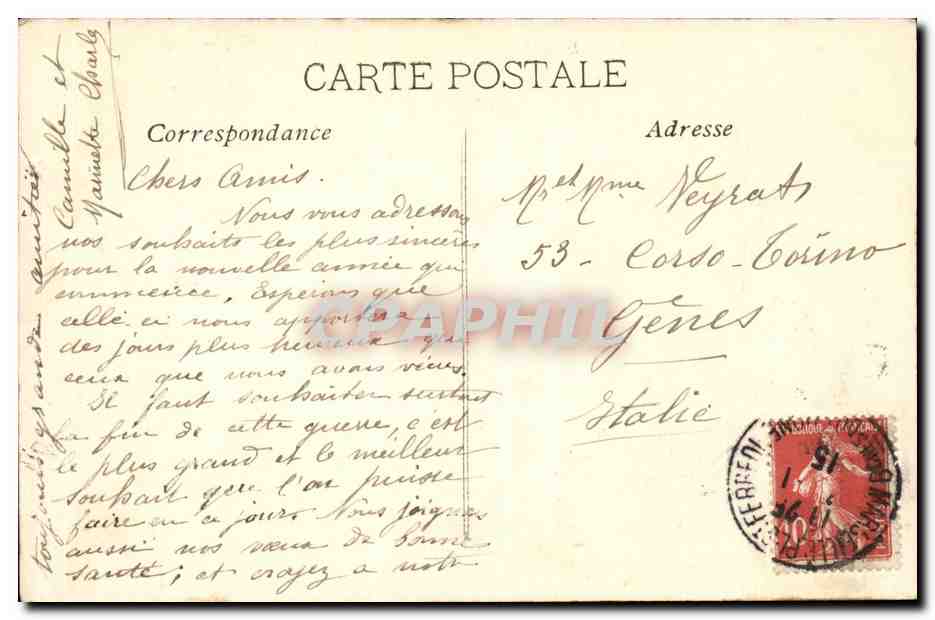 CARTE POSTALE
Correspondance
Adresse
Chers Amis.
Nous vous adressons
nos souhaits les plus sincères
pour la nouvelle année qui
commence. Espérons que
celle-ci nous apportera
des jours plus heureux que
ceux que nous avons vécus.
Il faut souhaiter surtout
la fin de cette guerre, c'est
le plus grand et le meilleur
souhait que l'on puisse
faire en ce jour. Nous joignons
aussi nos vœux de bonne
santé; et croyez a notre
toujours grande amitié
Camille et
Marinette Charles
Mr et Mme Neyrat
53 - Corso - Torino
Gênes
Italie
CPAPHIL